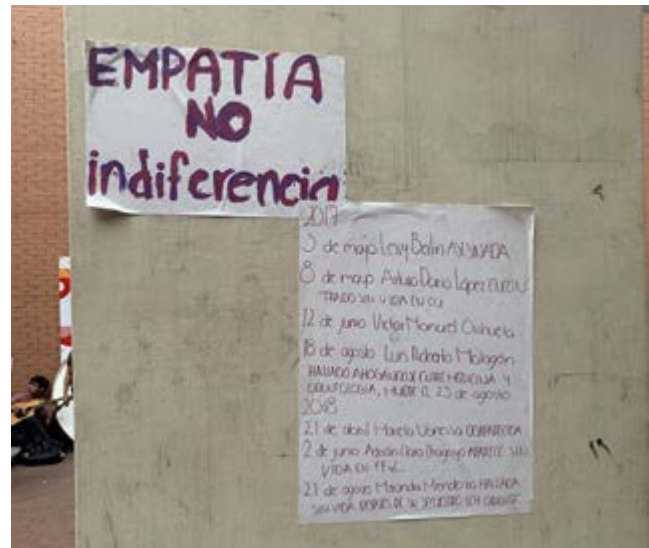 EMPATÍA
NO
indiferencia
2017
3 de mayo Lesvy Berlín ASESINADA
8 de mayo Arturo Dario López ENCON
TRADO SIN VIDA EN CU
12 de junio Victor Manuel Orihuela
18 de agosto Luis Roberto Malagón
HALLADO AHOGÁNDOSE ENTRE MEDICINA Y
ODONTOLOGIA, MUERE EL 23 de agosto
2018
21 de abril Mariela Vanessa DESAPARECIDA
2 de junio APARECE SIN
VIDA EN FFyL
21 de agosto Miranda Mendoza HALLADA
SIN VIDA DESPUÉS DE SU SECUESTRO